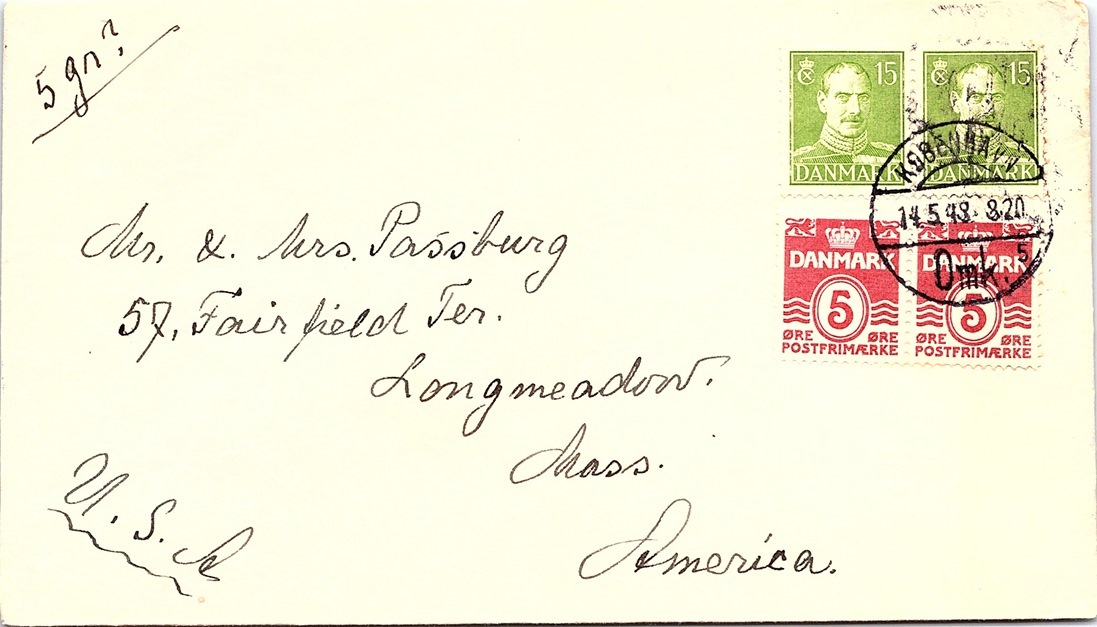 5 gr?
15 15
DANMARK DANMARK
KØBENHAVN
14.5.48. 8.20
Omk. 5
DANMARK DANMARK
5 5
ØRE ØRE ØRE ØRE
POSTFRIMÆRKE POSTFRIMÆRKE
Mr. & Mrs. Passburg
57, Fairfield Ter.
Longmeadow.
Mass.
America.
U.S.A